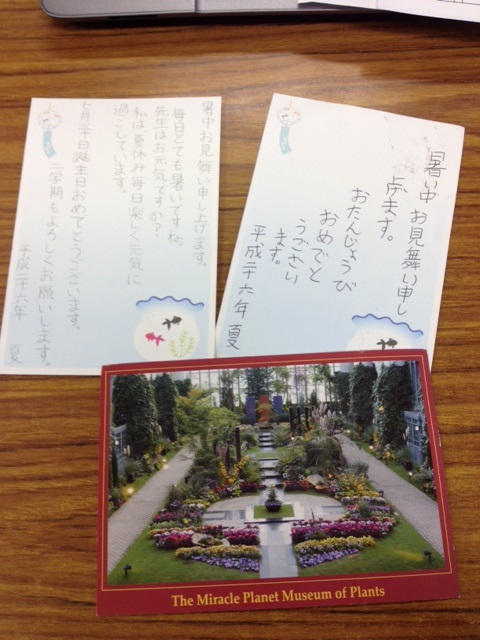 暑中お見舞い申し上げます。
毎日とても暑いですね。
先生はお元気ですか？
私は夏休み毎日楽しく元気に
過ごしています。
七月三十日誕生日おめでとうございます。
二学期もよろしくお願いします。
平成二十六年 夏
暑い中 お見舞い申し
ます。
おたんじょうび
おめでと
うござい
ます。
平成二十六年 夏
The Miracle Planet Museum of Plants